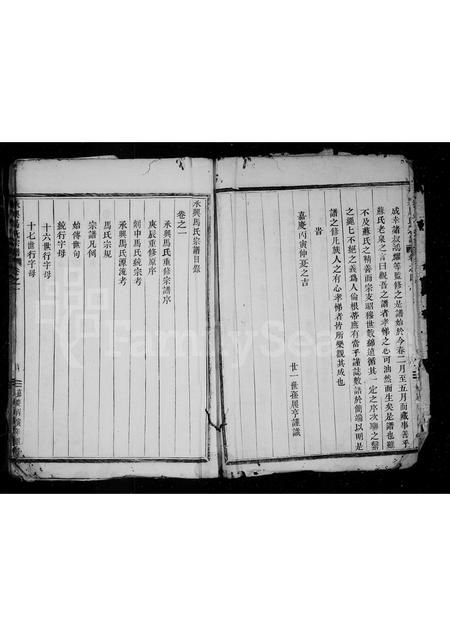 成幸諸叔鴻耀等監修之是譜始於今春二月至五月而蕆事善乎
蘇氏老泉之言曰觀吾之譜者孝悌之心可油然而生矣是譜也雖
不及蘇氏之精善而宗支昭穆世數縣遠循其一定之序次聯之繫
之繩七不絕之義使人倫根蒂應有當乎謹誌數語於簡端以明是
譜之修凡族人之有心孝悌者皆所樂觀其成也
旹
嘉慶丙寅仲夏之吉
廿一世孫展亨謹識
承興馬氏宗譜目錄
卷之一
承興馬氏重修宗譜序
庚辰重修原序
剡中馬氏統宗考
承興馬氏源流考
馬氏宗規
宗譜凡例
始傳世句
統行字母
十六世行字母
十七世行字母
嘉慶丙寅